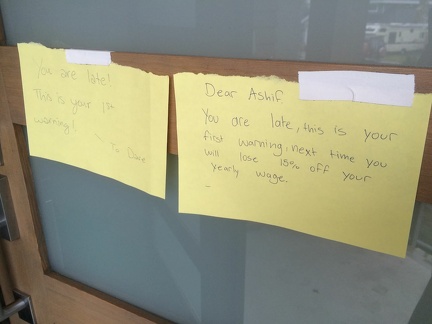 You are late!
This is your 1st
warning!
To Dave
Dear Ashif
You are late, this is your
first warning, next time you
will lose 15% off your
yearly wage.